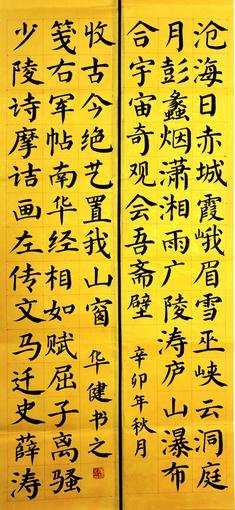 沧海日赤城霞峨眉雪巫峡云洞庭
月彭蠡烟潇湘雨广陵涛庐山瀑布
合宇宙奇观会吾斋壁
辛卯年秋月
少陵诗摩诘画左传文马迁史薛涛
笺右军帖南华经相如赋屈子离骚
收古今绝艺置我山窗
华健书之